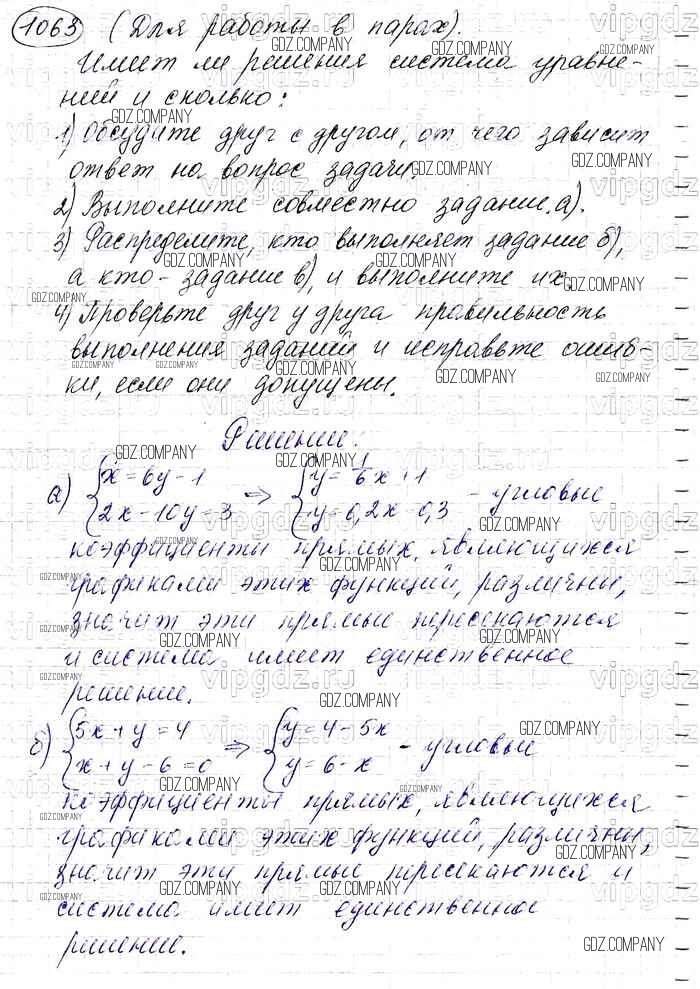 1063 (Для работы в парах).
Имеет ли решения система уравне-
ний и сколько:
1) Обсудите друг с другом, от чего зависит
ответ на вопрос задачи.
2) Выполните совместно задание а).
3) Распределите, кто выполняет задание б),
а кто - задание в), и выполните их.
4) Проверьте друг у друга правильность
выполнения заданий и исправьте ошиб-
ки, если они допущены.
Решение:
а) { x = 6y - 1 => { y = 1/6 x + 1
2x - 10y = 3 y = 0,2x - 0,3 - угловые
коэффициенты прямых, являющихся
графиками этих функций, различны,
значит эти прямые пересекаются
и система имеет единственное
решение.
б) { 5x + y = 4 => { y = 4 - 5x
x + y - 6 = 0 y = 6 - x - угловые
коэффициенты прямых, являющихся
графиками этих функций, различны,
значит эти прямые пересекаются и
система имеет единственное
решение.
GDZ.COMPANY
vipgdz.ru